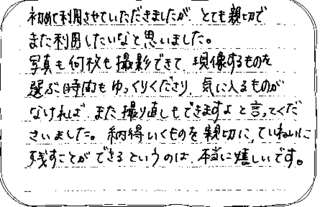 初めて利用させていただきましたが、とても親切で
また利用したいなと思いました。
写真も何枚も撮影できて、現像するものを
選ぶ時間もゆっくりくださり、気に入るものが
なければ、また撮り直しもできますよと言ってくだ
さいました。納得いくものを親切に、ていねいに
残すことができるというのは、本当に嬉しいです。